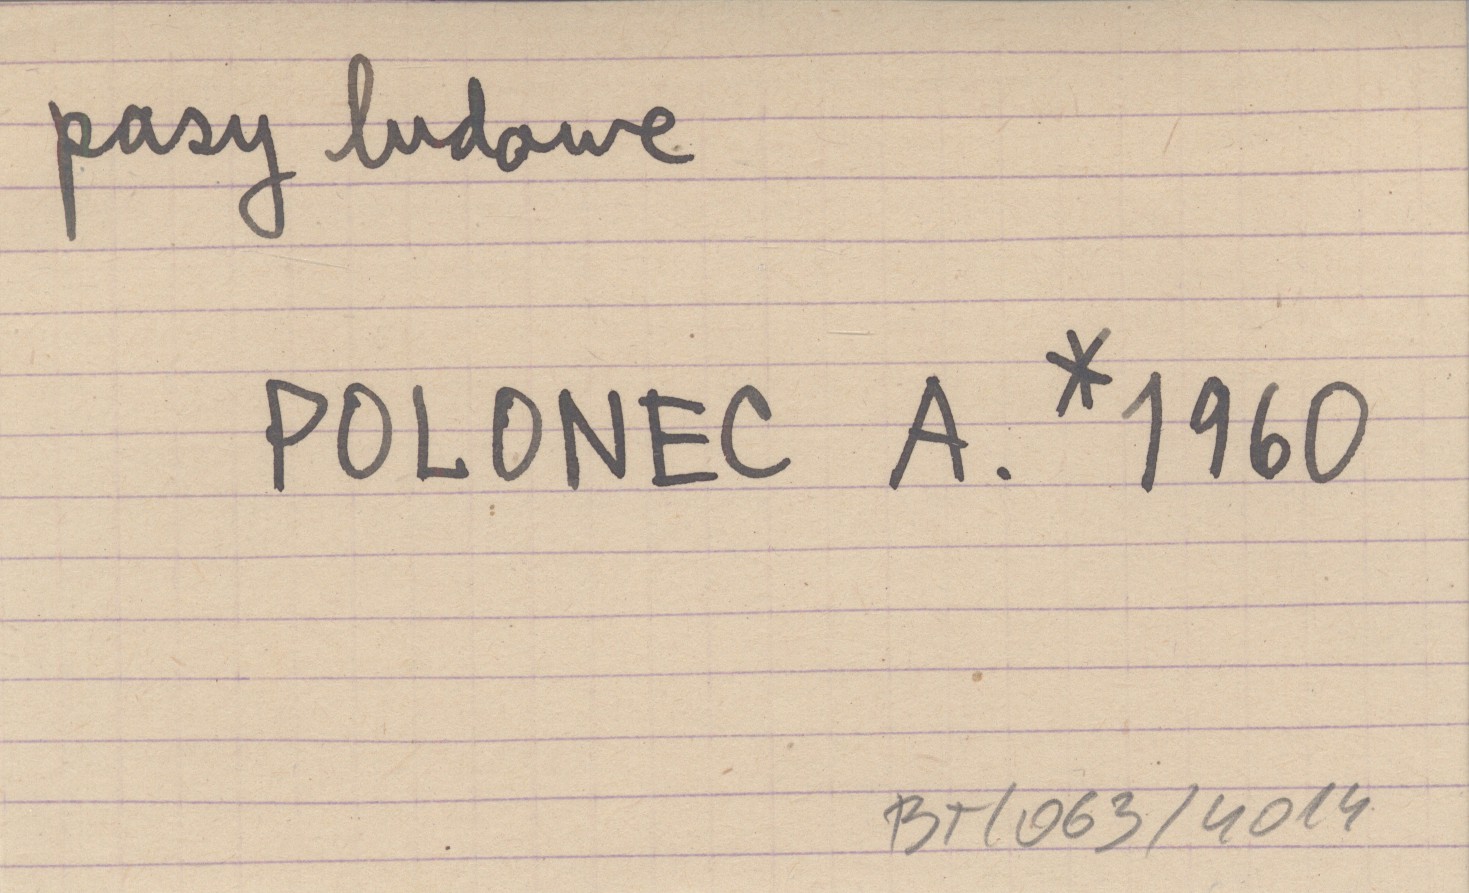 pasy ludowe
POLONEC A. *1960
BT/063/4014